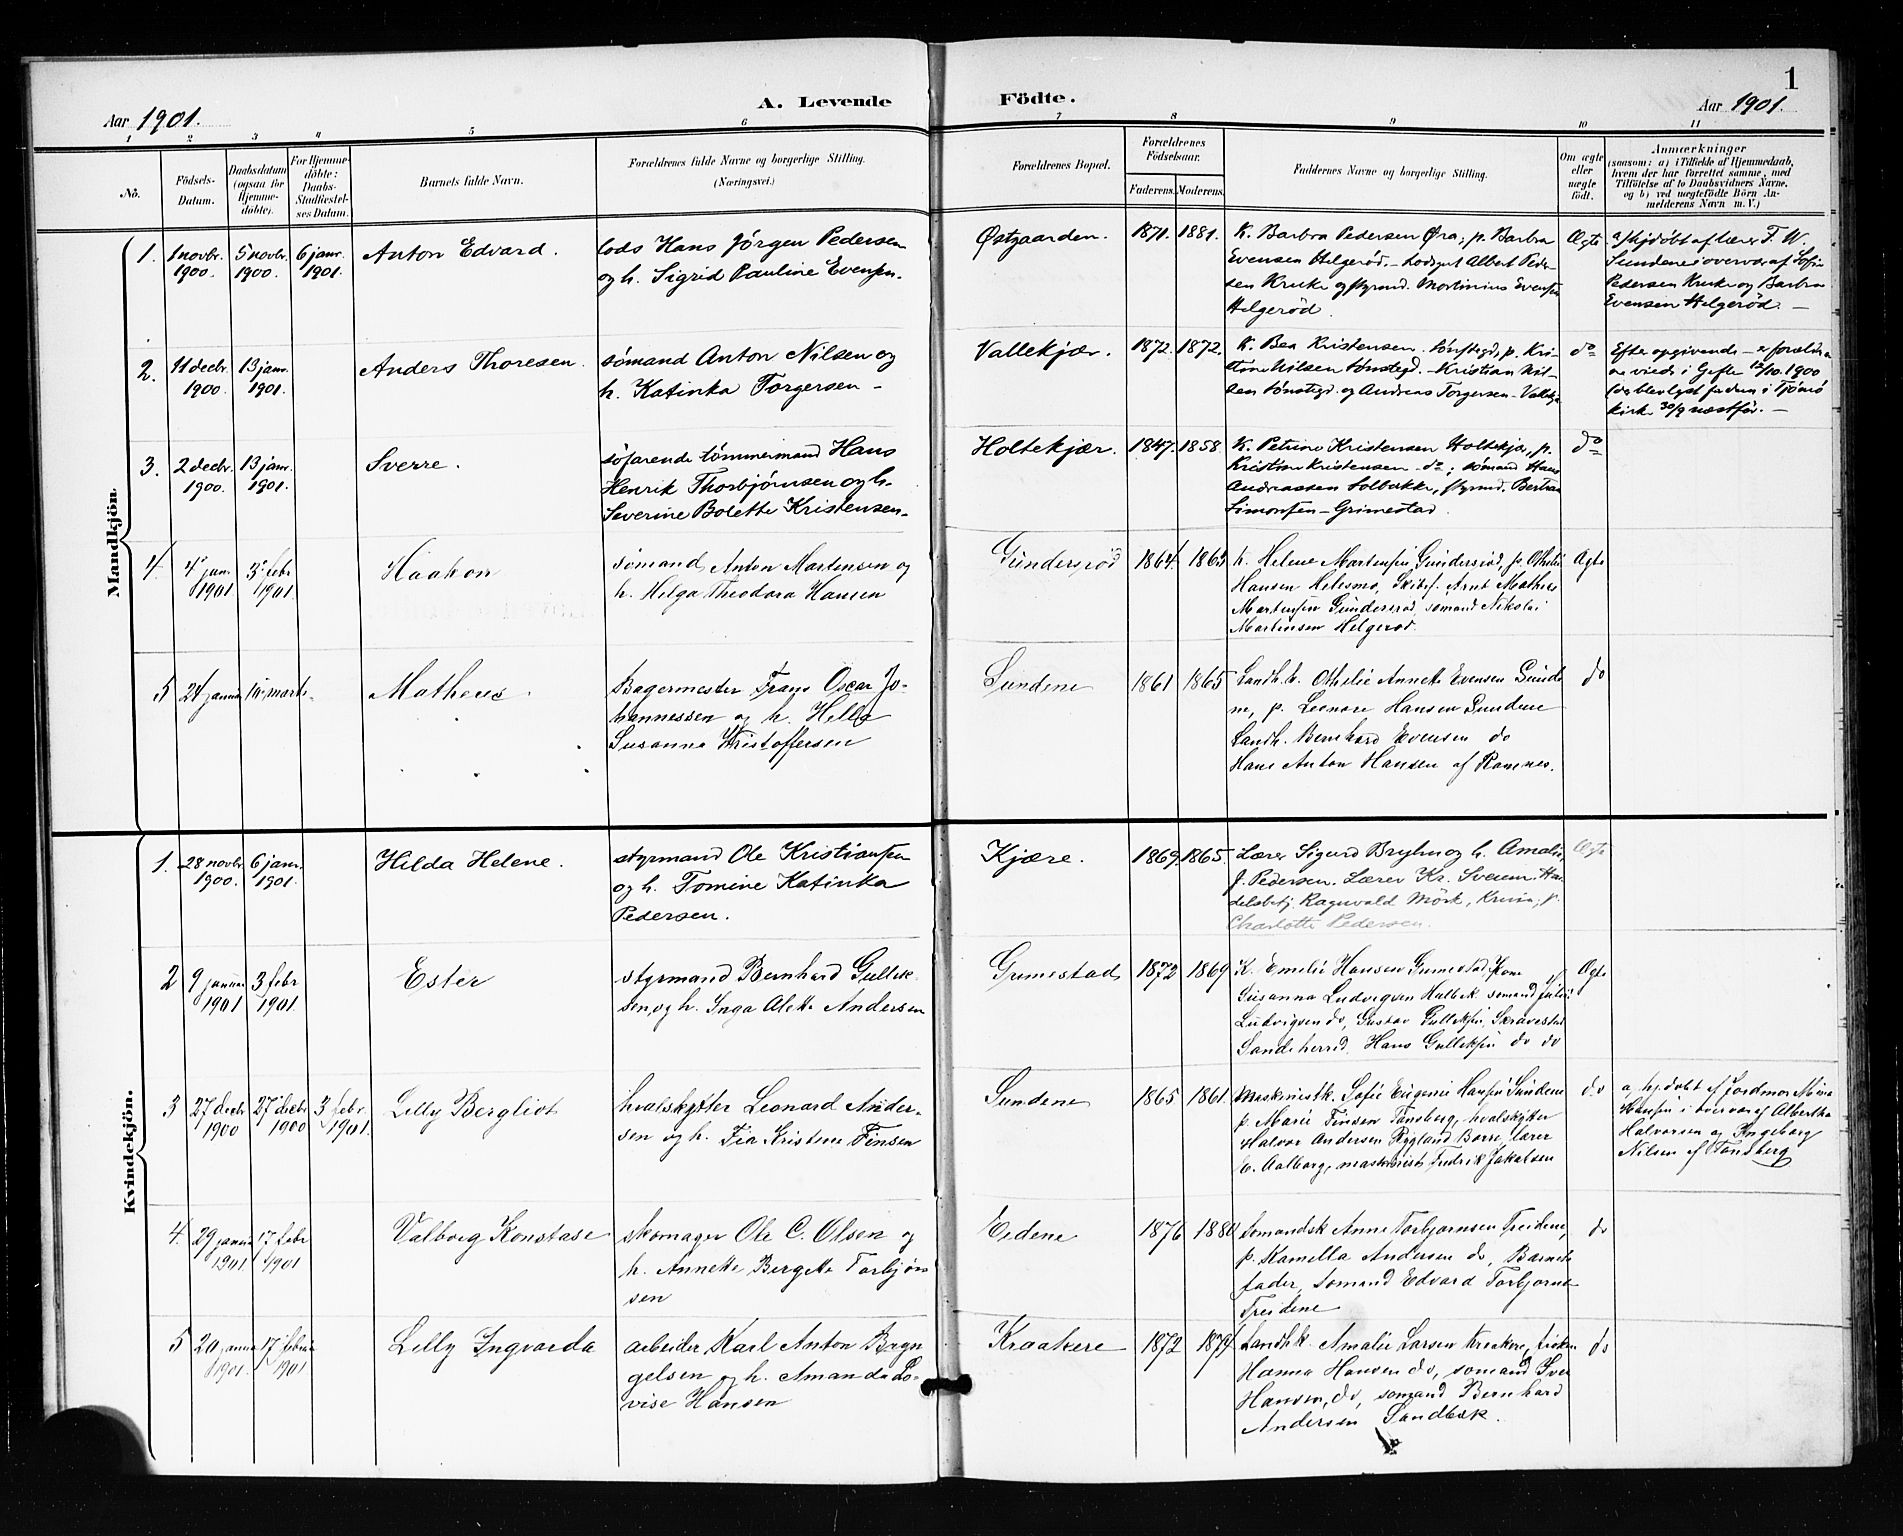 1
A. Levende Födte.
Aar 1901.
Aar 1901.
1 2 3 4 5 6 7 8 9 10 11
No.
Födsels-Datum.
Daabsdatum (ogsaa for Hjemme-döbte).
For Hjemme-döbte: Daabs-Stadfæstel-ses Datum.
Barnets fulde Navn.
Forældrenes fulde Navne og borgerlige Stilling.
(Næringsvei.)
Forældrenes Bopæl.
Forældrenes Födselsaar.
Faderens. Moderens.
Faddernes Navne og borgerlige Stilling.
Om ægte eller uægte födt.
Anmærkninger
(saasom: a) i Tilfælde af Hjemmedaab,
hvem der har forrettet samme, med
Tilföielse af to Daabsvidners Navne,
og b) ved uægtefödte Börn An-
melderens Navn m. V.)
Mandkjön.
1. 1 novbr. 1900. 5 novbr. 1900. 6 janr. 1901.
Anton Edvard.
lods Hans Jørgen Pedersen
og h. Sigrid Pauline Evensen.
Østgaarden. 1871. 1881.
K. Barbra Pedersen Øra; p. Barbra
Evensen Helgerød. – Lodsgut Albert Peder-
sen Kruke og styrmd. Martinius Evensen
Helgerød.
Ægte
a/ hjdøbt af lærer T. W.
Sundene i overvær af Sofie
Pedersen Kruke og Barbra
Evensen Helgerød. –
2. 11 decbr. 1900. 13 janr. 1901.
Anders Thoresen.
sømand Anton Nilsen og
h. Katinka Torgersen –
Vallekjær. 1872. 1872.
K. Bea Kristensen Sønstegd, p. Kri-
stine Nilsen Sønstegd. – Kristian Nil-
sen Sønstegd. og Andreas Torgersen – Vallekjær
do
Efter opgivende er forældre-
ne viede i Gefle 12/10. 1900
kirke 30/9 næstfør. –
3. 2 decbr. 1900. 13 janr. 1901.
Sverre.
søfarende tømmermand Hans
Henrik Thorbjørnsen og h.
Severine Bolette Kristensen.
Holtekjær. 1847. 1858.
K. Petrine Kristensen Holtekjær, p.
Kristine Kristensen do; sømand Hans
Andreassen Solbakke, styrmd. Bertran
Simonsen – Grimestad.
do
4. 4 jan. 1901 3 febr 1901
Haakon
sømand Anton Martensen og
h. Helga Theodora Hansen
Gundersrød 1864 1863
h. Helene Martensen Gundersrød, p. Othilie
Hansen Helesmo, Skibsf. Arnt Mathæus
Martensen Gundersrød, sømand Nikolai
Martinsen Helgerød.
Ægte
5 24 januar 10 marts
Matheus.
Bagermester Frans Oscar Jo-
hannessen og h. Hella
Susanna Kristoffersen
Sundene 1861 1865
Landh. k. Othilie Annette Evensen Sunde
ne, p. Leonore Hansen Sundene
Landh. Bernhard Evensen do
Hans Anton Hansen af Ramnes.
do
Kvindekjön.
1. 28 novbr. 1900. 6 janr. 1901.
Hilda Helene.
styrmand Ole Kristiansen
og h. Tomine Katinka
Pedersen.
Kjære. 1869. 1865.
Lærer Sigurd Bryhn og h. Amalie,
J. Pedersen. Lærer Kr. Sveum. Han-
delsbetj. Ragnvald Mörk, Krinia; p.
Charlotte Pedersen.
Ægte
2 9 januar 1901 3 febr 1901
Ester
styrmand Bernhard Gullik-
sen og h. Inga Alette Andersen
Grimestad 1872 1869
K. Emilie Hansen Grimestad, Kone
Susanna Ludvigsen Holbek sømand Julius
Ludvigsen do, Gustav Gulliksen, Skravestad
Sandeherred. Hans Gulliksen do do
Ægte
3 27 decbr 1900 27 decbr 1900 3 febr. 1901.
Lilly Bergliot
hvalskytter Leonard Ander-
sen og h. Fia Kristine Finsen
Sundene 1865 1861
Maskinistk. Sofie Eugenie Hansen Sundene
p. Marie Finsen Tønsberg, hvalskytter
Halvor Andersen Rygland Borre, lærer
E. Aalborg, maskinist Fredrik Jakobsen
do
a, hjdøbt af Jordmor Mina
Hansen i overvær af Alberthe
Halvorsen og Ingeborg
Nilsen af Tønsberg
4. 29 januar 1901 17 febr 1901
Valborg Konstase
skomager Ole C. Olsen og
h. Annette Bergette Torbjørn
sen
Eidene 1876 1880
Sømandsk Anne Torbjørnsen Treidene,
p. Kamilla Andersen do, Barnets
fader, Sømand Edvard Torbjørns-
Treidene
do
5 20 januar 1901. 17 februar 1901
Lilly Ingvarda
arbeider Karl Anton Bryn
gelsen og h. Amanda Lo-
vise Hansen
Kraakere 1872 1879
Landh.k. Amalie Larsen Kraakere, frøken
Hanna Hansen do, sømand Iver
Hansen, do, sømand Bernhard
Andersen Sandbæk.
do